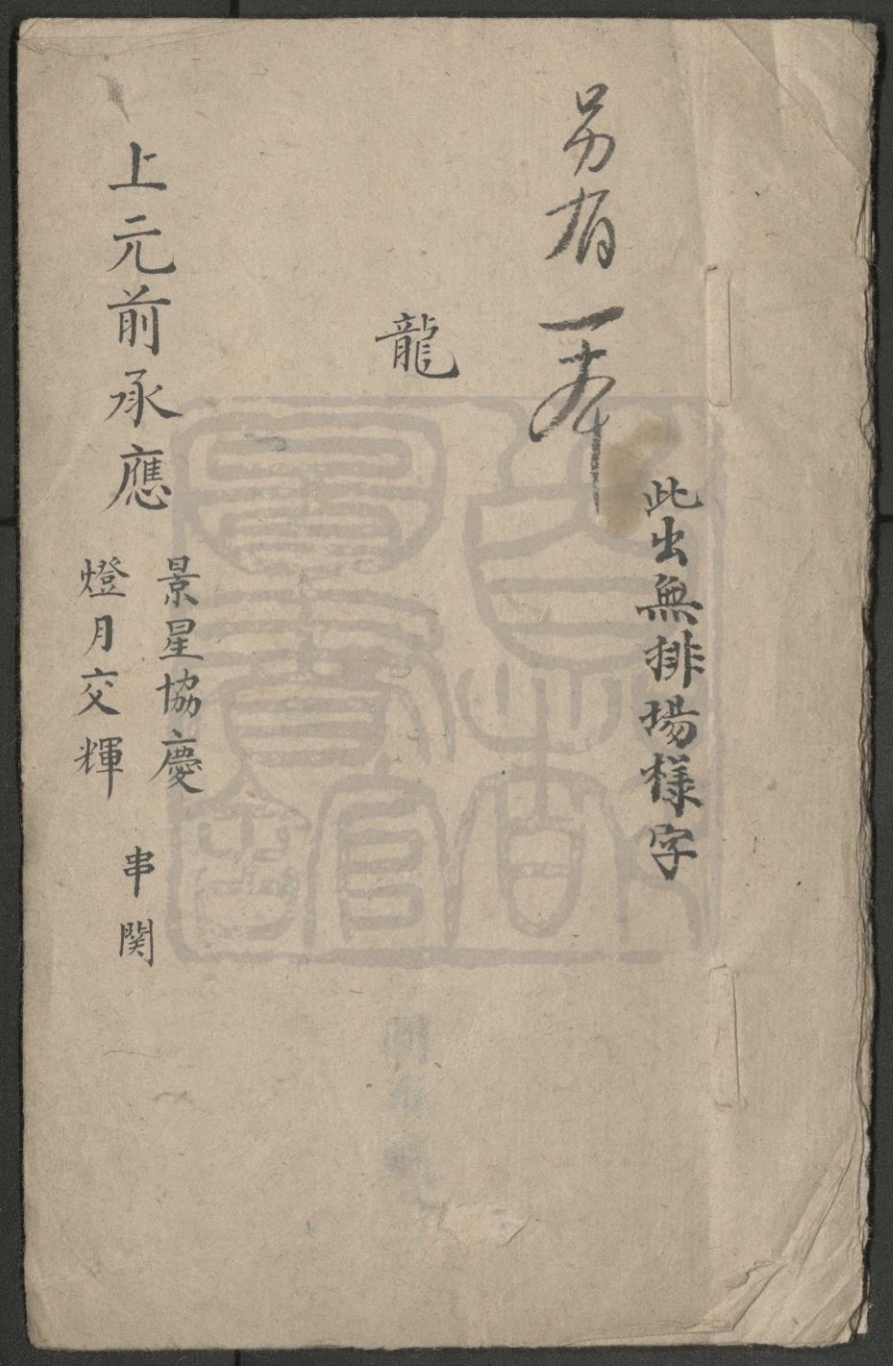 另有一本
此出無排場樣字
龍
上元前承應
景星協慶
燈月交輝
串関